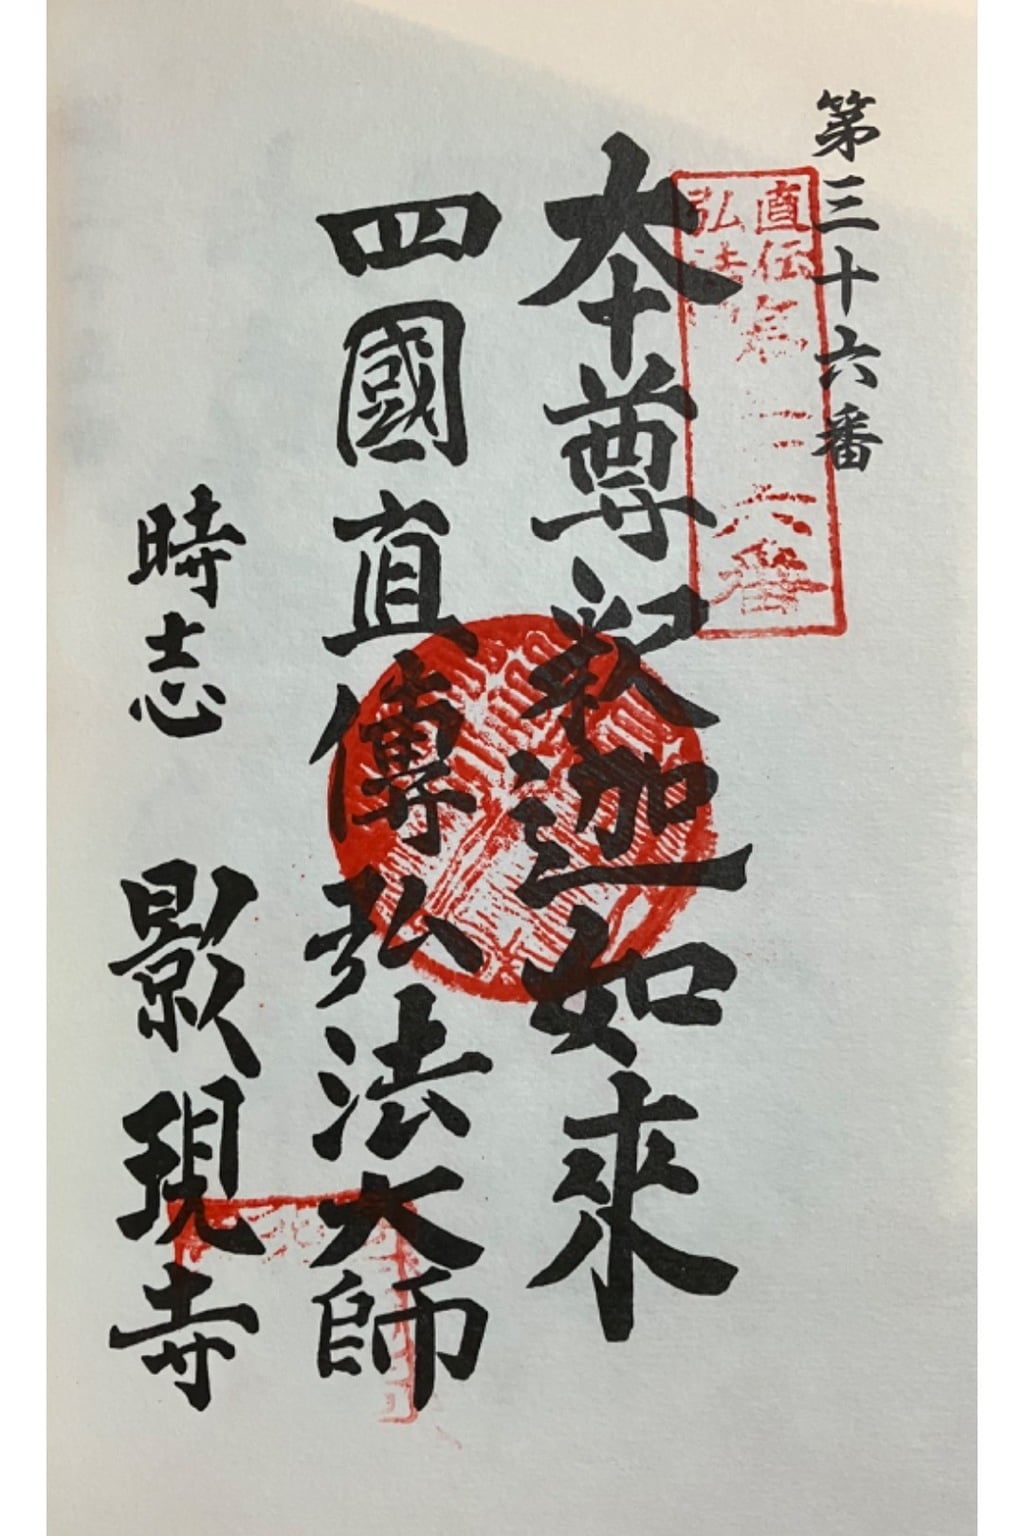 第三十六番
直伝
弘法
六番
本尊釈迦如來
四國直傳弘法大師
時志 影現寺